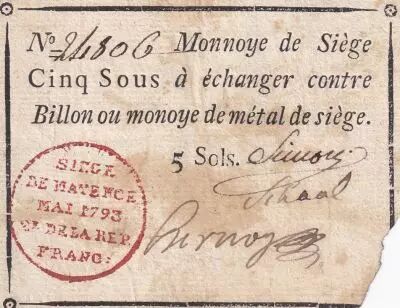 No 24806 Monnoye de Siège
Cinq Sous à échanger contre
Billon ou monoye de métal de siège.
5 Sols. Simon
Schaal
SIEGE
DE MAYENCE
MAI 1793
ET DE LA REP.
FRANC: